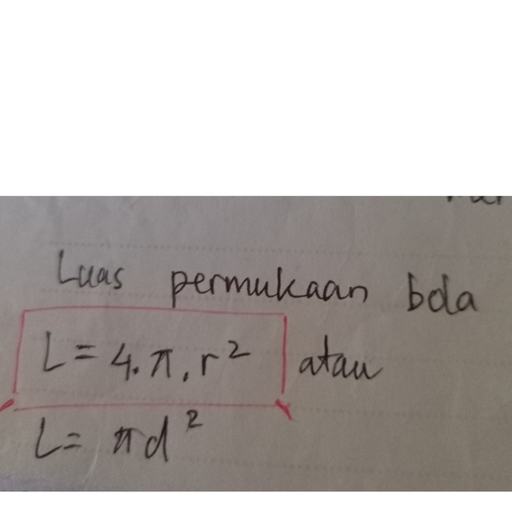 Luas permukaan bola
L = 4.π.r² atau
L = πd²